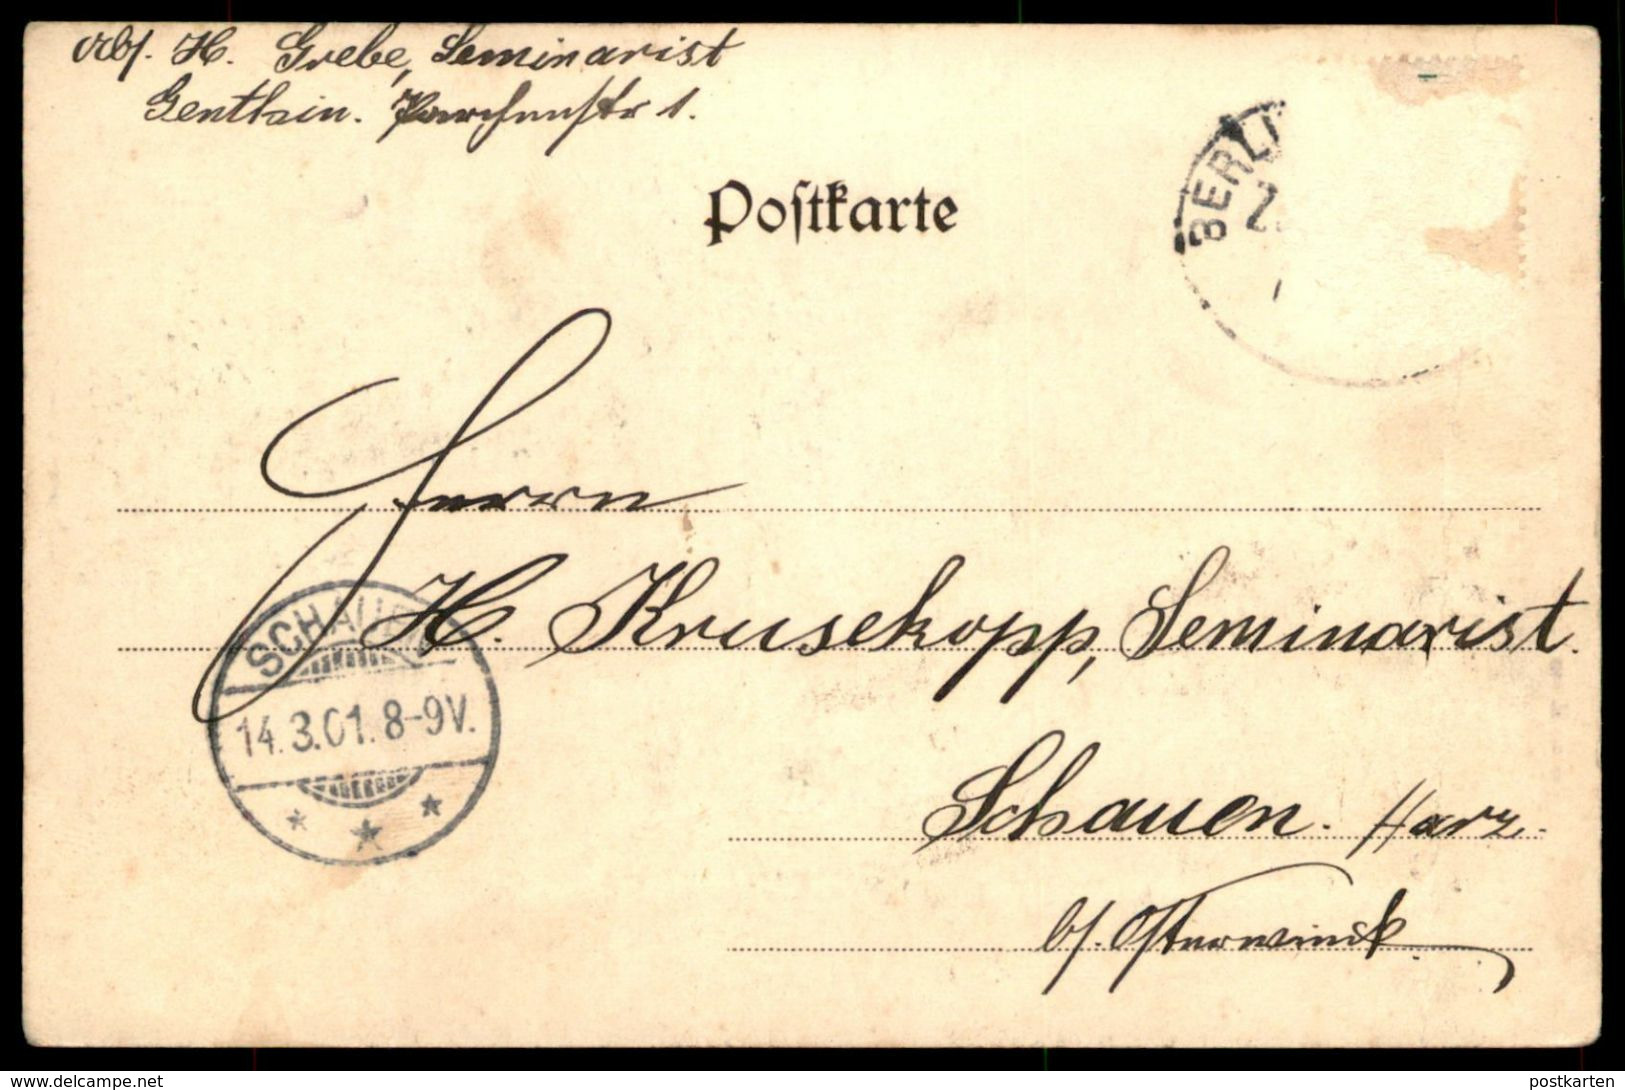 Abs. H. Grebe, Seminarist
Genthin. Parchenstr 1.
BERLI
Postkarte
Herrn
H. Krusekopp, Seminarist.
SCHAUEN
14.3.01.8-9V.
Schauen. Harz.
b/. Osterwieck
delcampe.net
postkarten